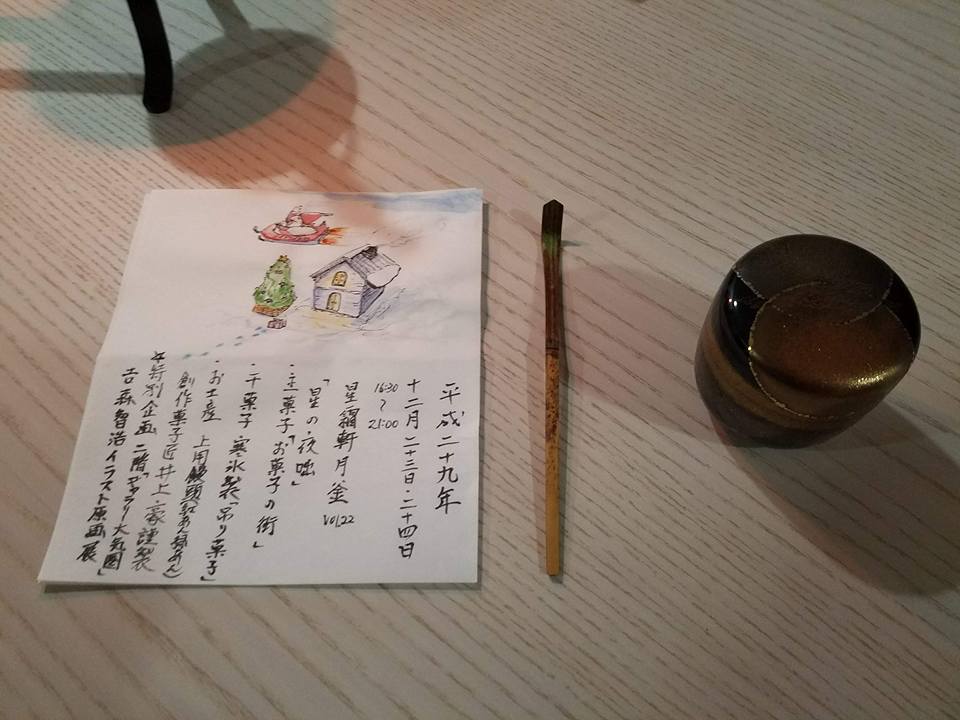 平成二十九年
十二月二十三日・二十四日
16:30
〜
21:00
星繝軒月釜
Vol,22
「星の夜咄」
・主菓子「お菓子の街」
・干菓子 寒氷製「吊り菓子」
・お土産 上用饅頭(紅あん緑あん)
創作菓子匠 井上 豪 謹製
特別企画 二階「ギャラリ大気圏」
吉森智浩イラスト原画展